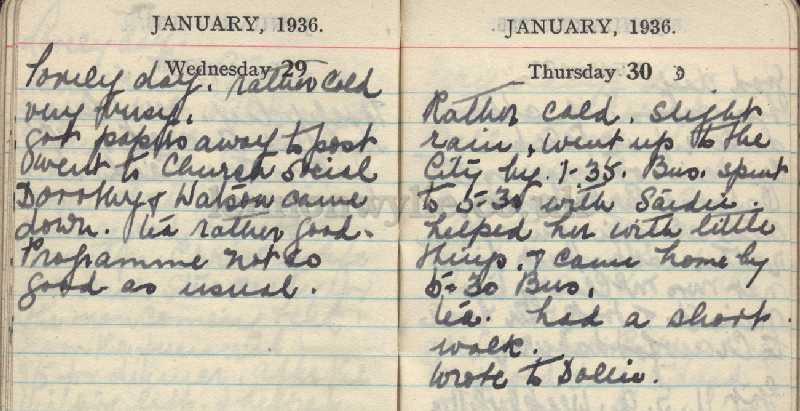 JANUARY, 1936.
Wednesday 29
Lovely day. rather cold
very busy.
got papers away to post
went to Church social
Dorothy & Watson came
down. tea rather good.
Programme not so
good as usual.
JANUARY, 1936.
Thursday 30
Rather cold. slight
rain, went up to the
City by. 1-35. Bus. spent
to 5-30 with Sadie.
helped her with little
things. I came home by
5-30 Bus.
tea. had a short.
walk.
Wrote to Dollie.